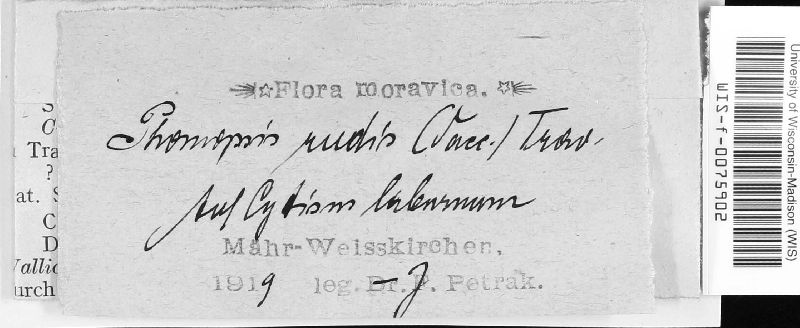 Flora moravica.
Phomopsis rudis (Sacc.) Trav.
Auf Cytisus laburnum
Mähr-Weisskirchen,
1919 leg. Dr. F. Petrak.
Tra
?
at. S
C
D
Vallic
urch
University of Wisconsin-Madison (WIS)
WIS-f-0075902